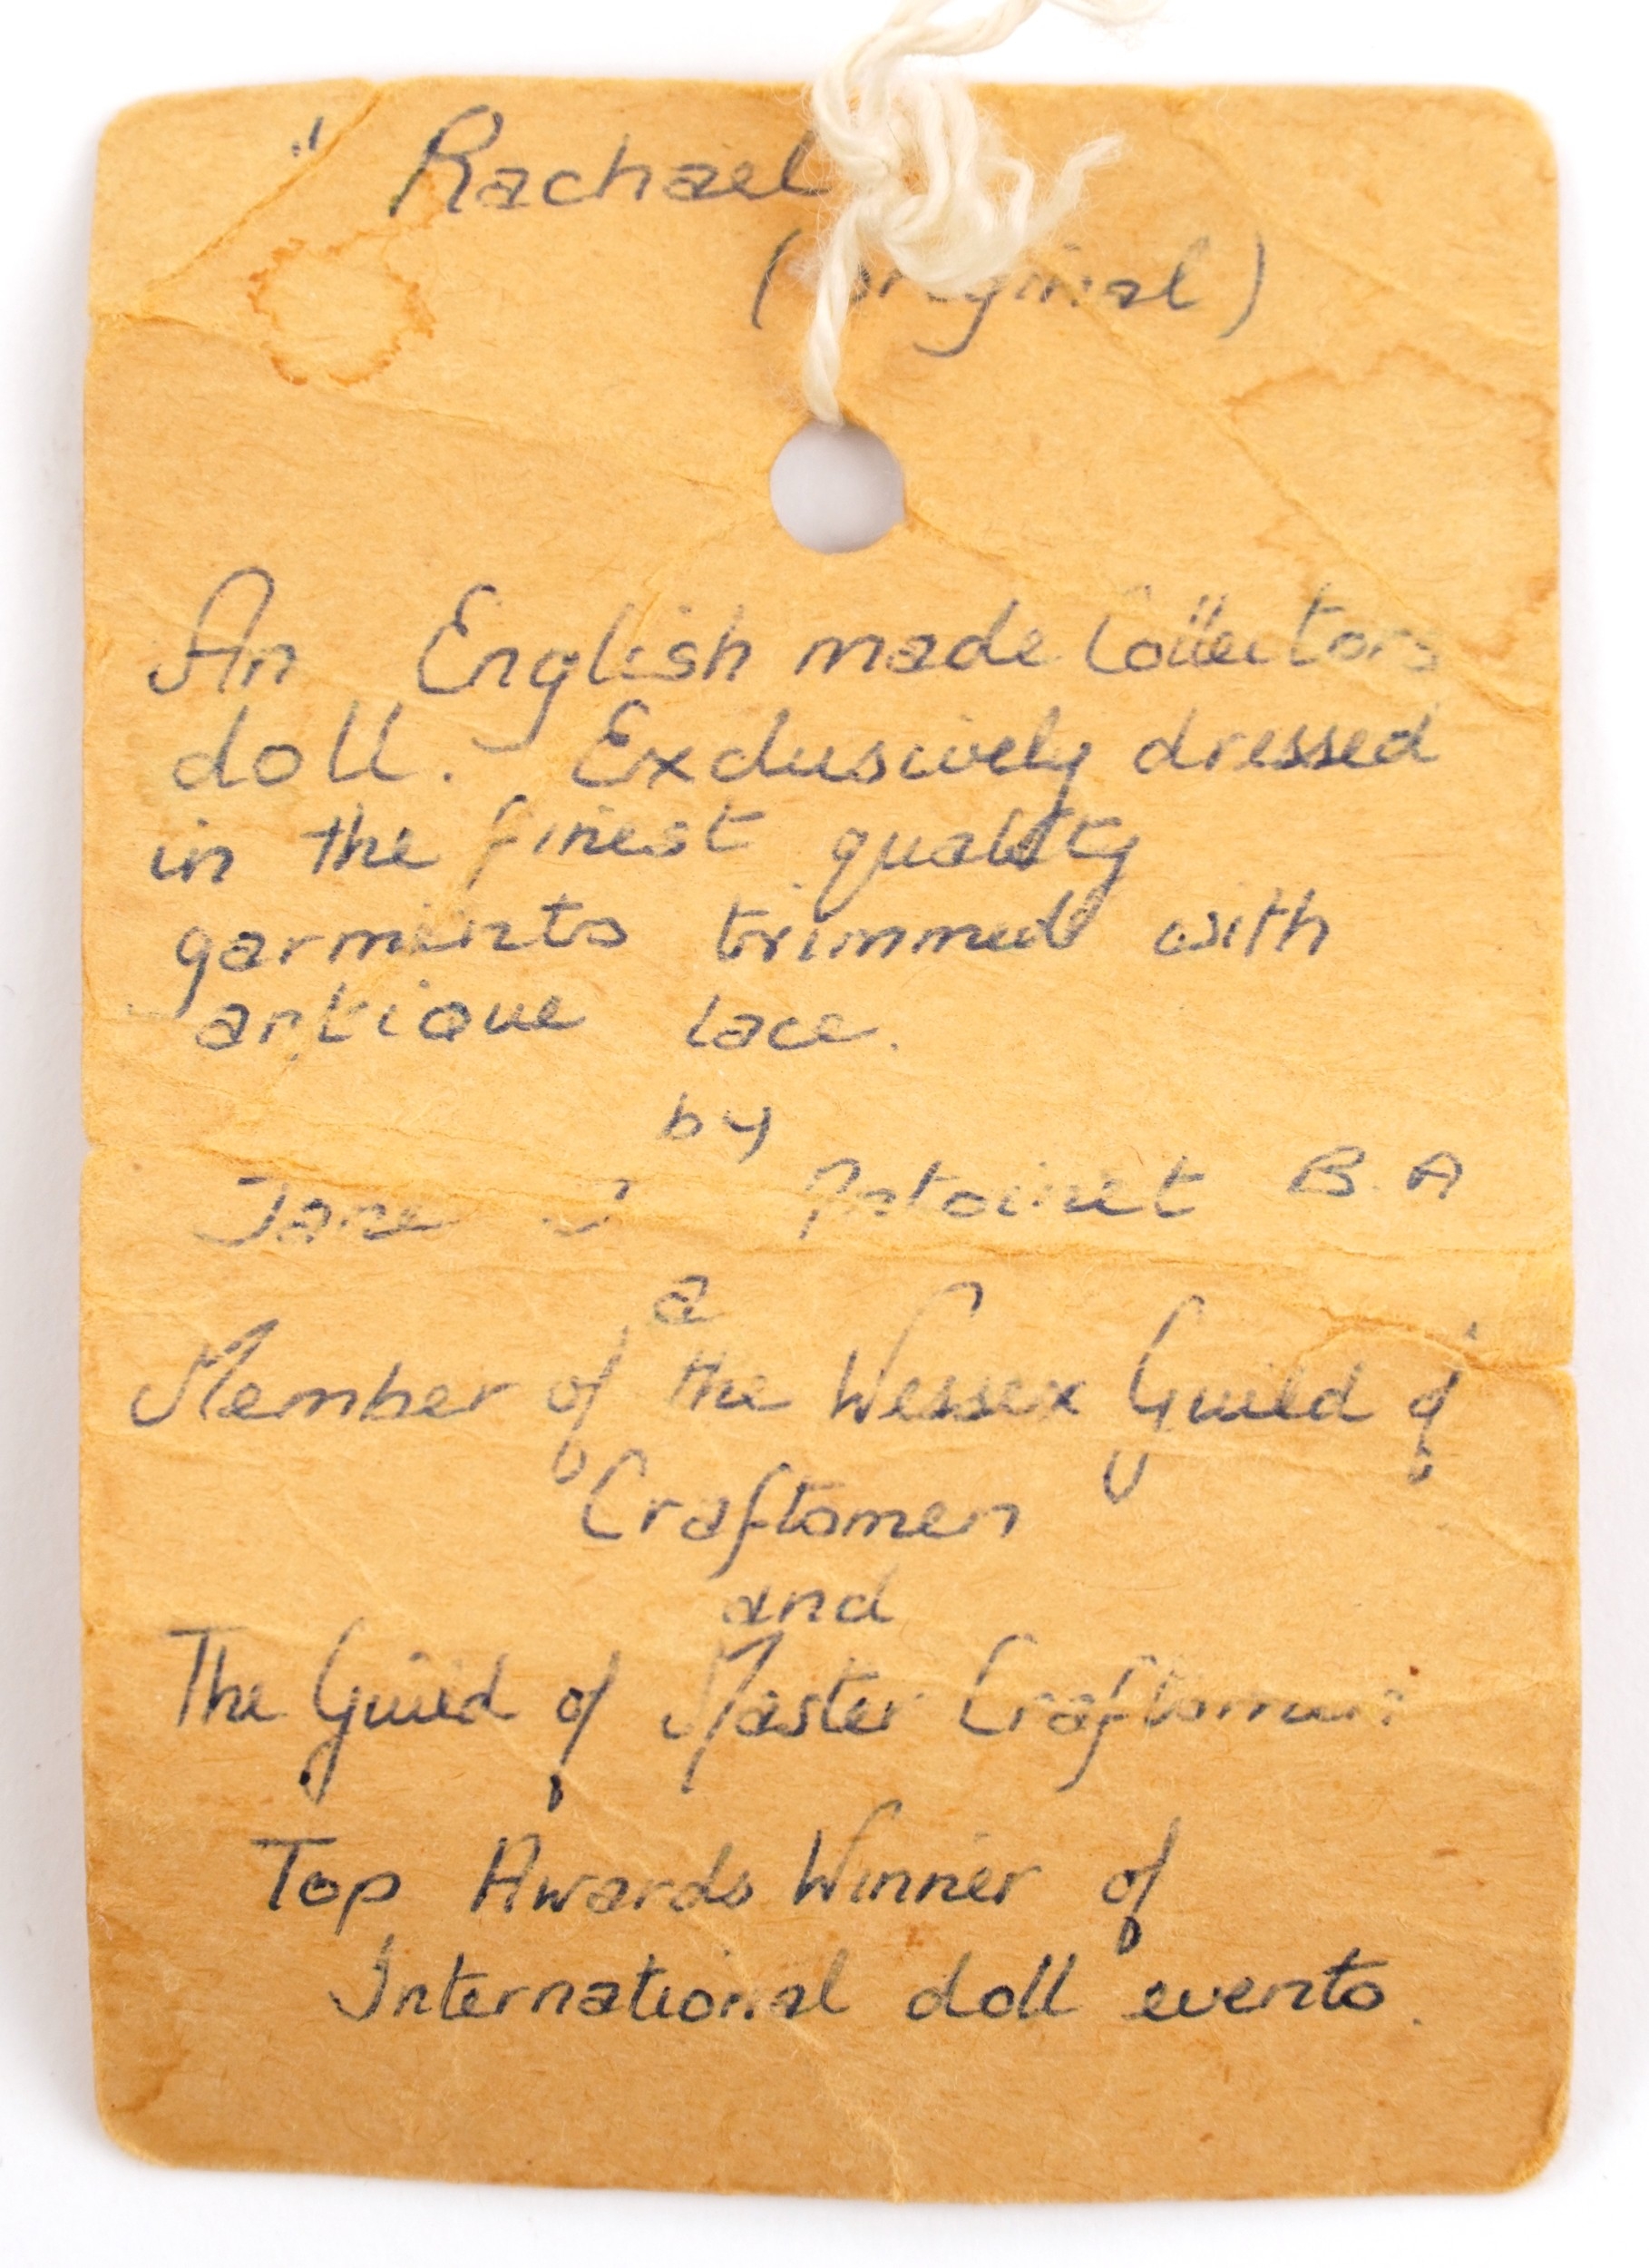 " Rachael
(original)
An English made Collectors
doll. Exclusively dressed
in the finest quality
garments trimmed with
antique lace.
by
Jane J B.A
a
Member of the Wessex Guild of
Craftsmen
and
The Guild of Master Craftsmen
Top Awards Winner of
International doll events.